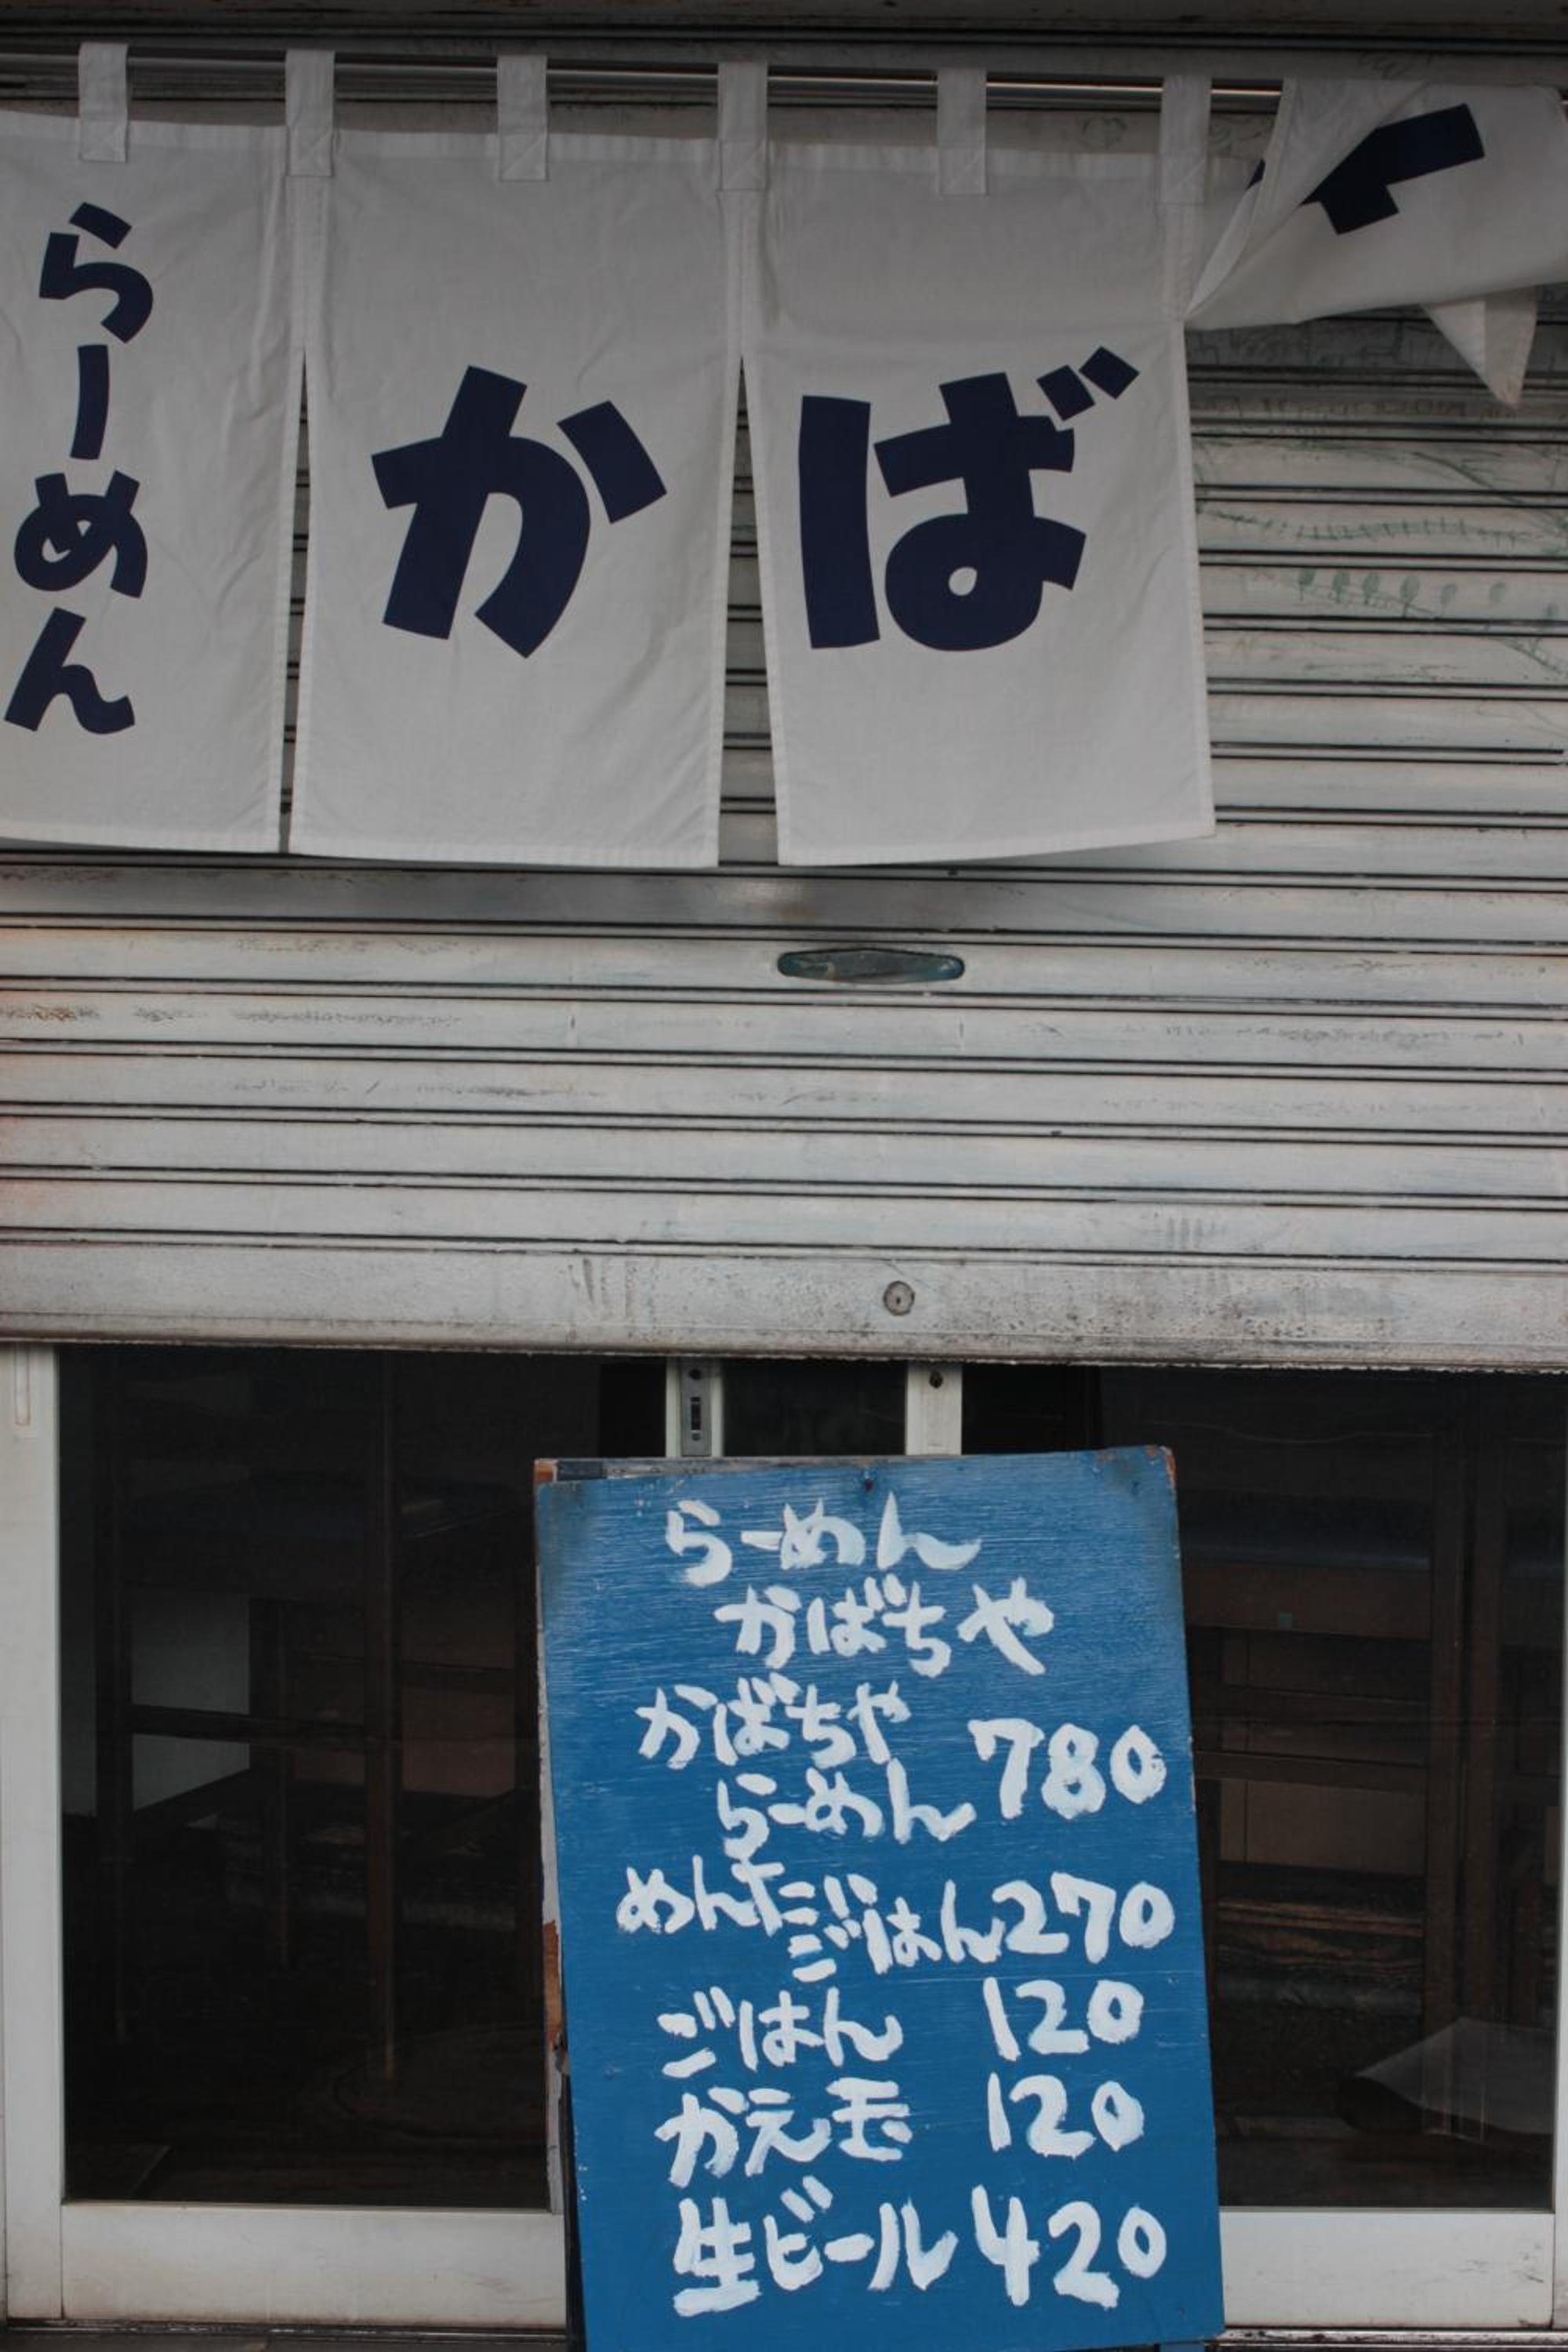 らーめん
かば
らーめん
かばちや
かばちや
らーめん 780
めんたい
ごはん 270
ごはん 120
かえ玉 120
生ビール 420